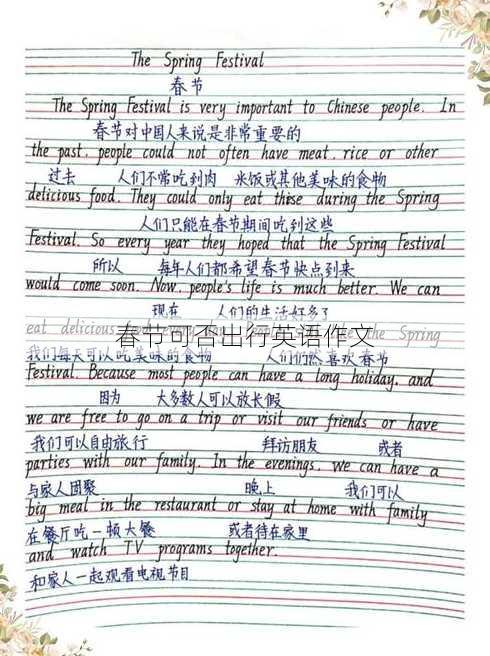 The Spring Festival
春节
The Spring Festival is very important to Chinese people. In
春节对中国人来说是非常重要的
the past, people could not often have meat, rice or other
过去 人们不常吃到肉 米饭或其他美味的食物
delicious food. They could only eat these during the Spring
人们只能在春节期间吃到这些
Festival. So every year they hoped that the Spring Festival
所以 每年人们都希望春节快点到来
would come soon. Now, people's life is much better. We can
现在 人们的生活好多了
eat delicious the Spring
春节可否出行英语作文
我们每天可以吃美味的食物 人们仍然喜欢春节
Festival. Because most people can have a long holiday, and
因为 大多数人可以放长假
we are free to go on a trip or visit our friends or have
我们可以自由旅行 拜访朋友 或者
parties with our family. In the evenings, we can have a
与家人团聚 晚上 我们可以
big meal in the restaurant or stay at home with family
在餐厅吃一顿大餐 或者待在家里
and watch TV programs together.
和家人一起观看电视节目